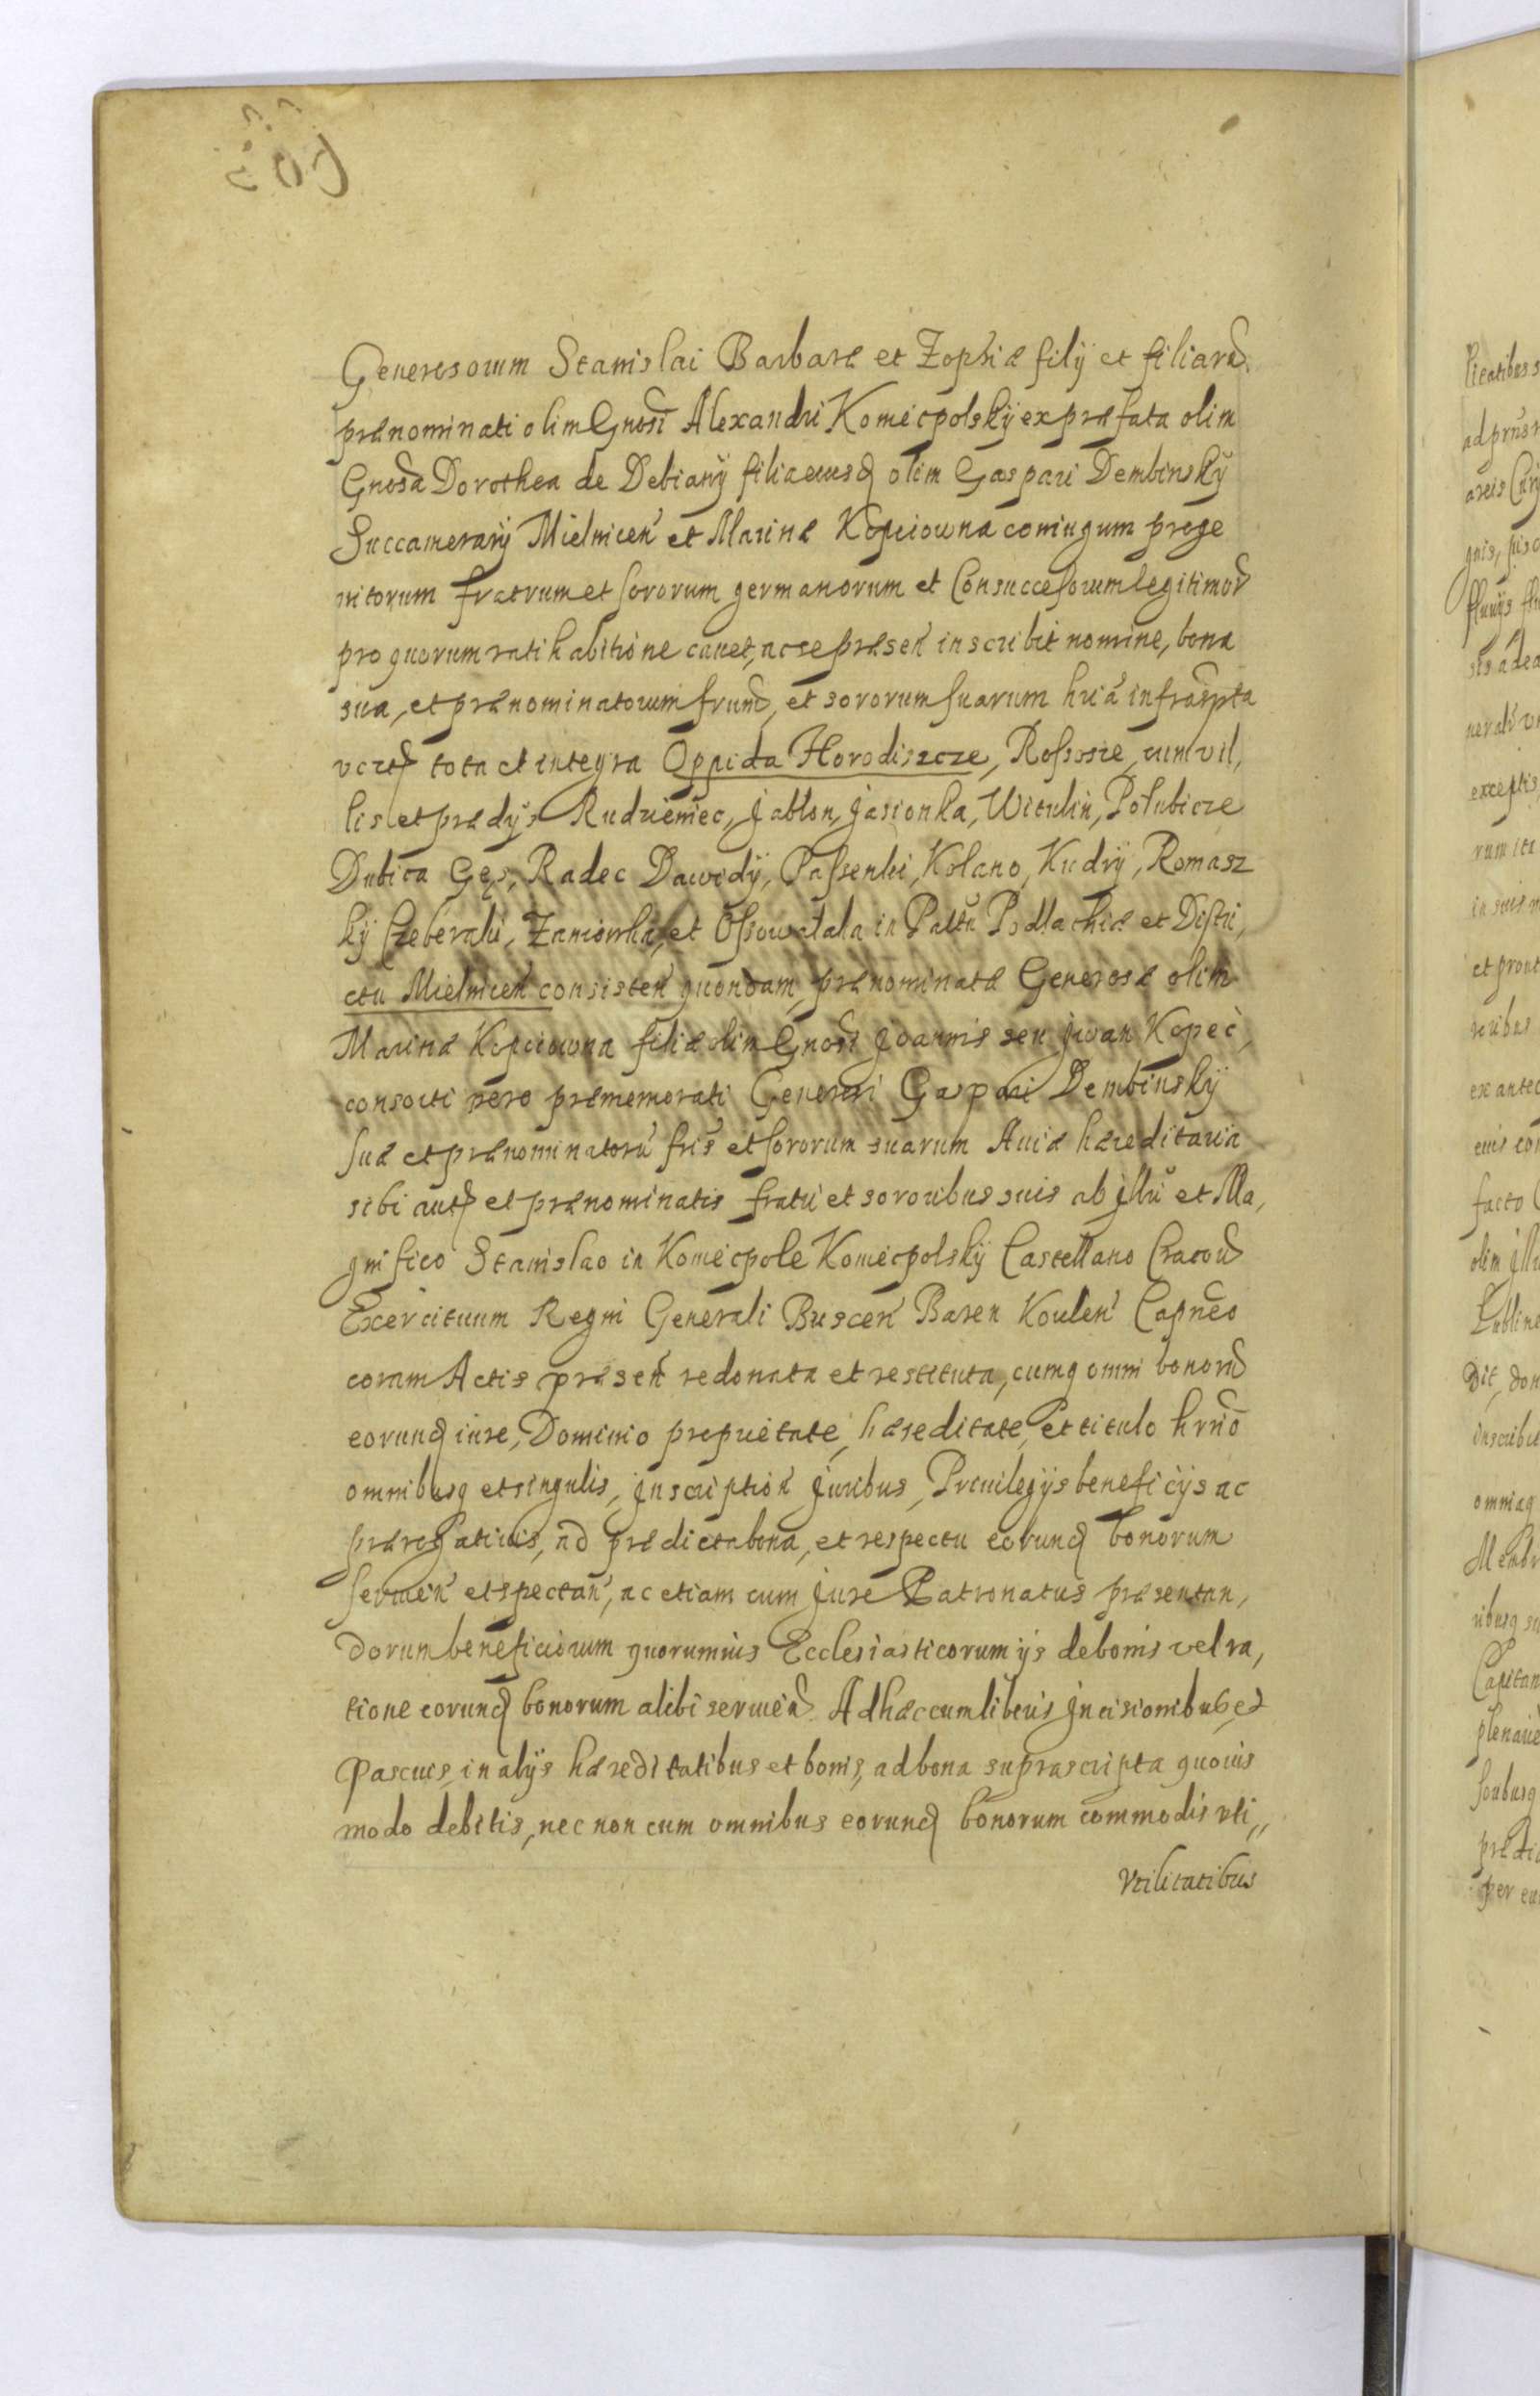 Generosorum Stanislai Barbaræ et Zophiæ filÿ et filiarū
prænominati olim Gnosi Alexandri Koniecpolskÿ ex præfata olim
Gnosa Dorothea de Debianÿ filia eiusq olim Gaspari Dembinskÿ
Succamerarÿ Mielnicen et Marinæ Kopciowna coniugum proge
nitorum fratrum et sororum germanorum et Consuccessorum legitimorū
pro quorum ratihabitione cauet, ac se præsen inscribit nomine, bona
sua, et prænominatorum frum, et sororum suarum hria infrascpta
vtq tota et integra Oppida Horodiszcze, Rossosze, cum vil,
lis et prædÿs Rudzieniec, Jablon, Jasionka, Witulin, Połubicze
Dubica Gęs, Radec Dawidÿ, Passenki, Kolano, Kudrÿ, Romasz
kÿ Czeberaki, Zaniowka, et Ossowa tala in Palttu Podlachiæ et Distri,
ctu Mielnicen consisten quondam, prænominatæ Generosæ olim
Marinæ Kopciowna filiæ olim Gnosi Joannis seu Jwan Kopeć,
consorti vero præmemorati Generosi Gaspari Dembinskÿ
suæ et prænominatorū fris et sororum suarum Auiæ hæreditaria
sibi autq et prænominatis fratri et sororibus suis ab Jllu et Ma,
gnifico Stanislao in Koniecpole Koniecpolskÿ Castellano Cracou
Exercituum Regni Generali Buscen Baren Koulen Capneo
coram Actis præsen redonata et restituta, cumq omni bonorū
eorunq iure, Dominio proprietate, hæreditate, et titulo hrio
omnibusq et singulis, Jnscription Juribus, Priuilegÿs beneficÿs ac
prærogatiuis, ad prædicta bona, et respectu eorunq bonorum
seruien et spectan, ac etiam cum Jure Patronatus præsentan,
dorum beneficiorum quorumuis Ecclesiasticorum ÿs de bonis vel ra,
tione eorunq bonorum alibi seruien. Ad hæc cum liberis Jncisionibus et
Pascuis, in alÿs hæreditatibus et bonis, ad bona suprascripta quouis
modo debitis, nec non cum omnibus eorunq bonorum commodis vti,,
Vtilitatibus